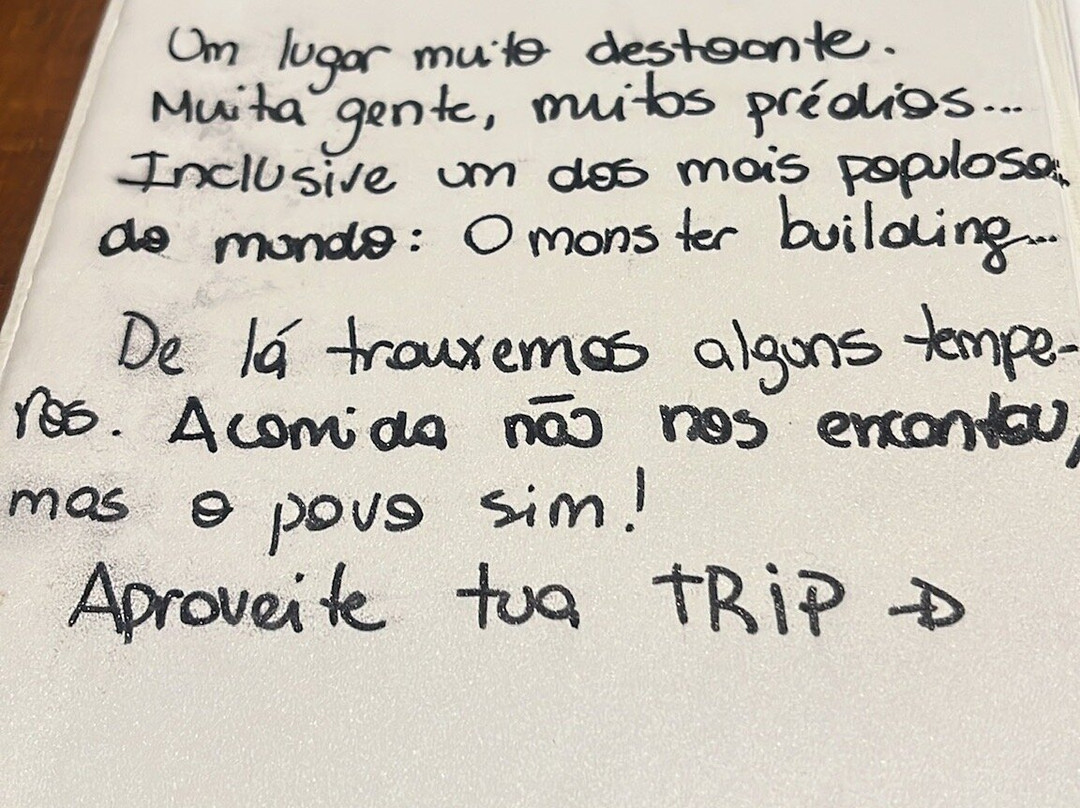 Um lugar muito destoante.
Muita gente, muitos prédios...
Inclusive um dos mais populosos
do mundo: O monster building...
De lá trouxemos alguns tempe-
ros. A comida não nos encantou,
mas o povo sim!
Aproveite tua TRiP →D